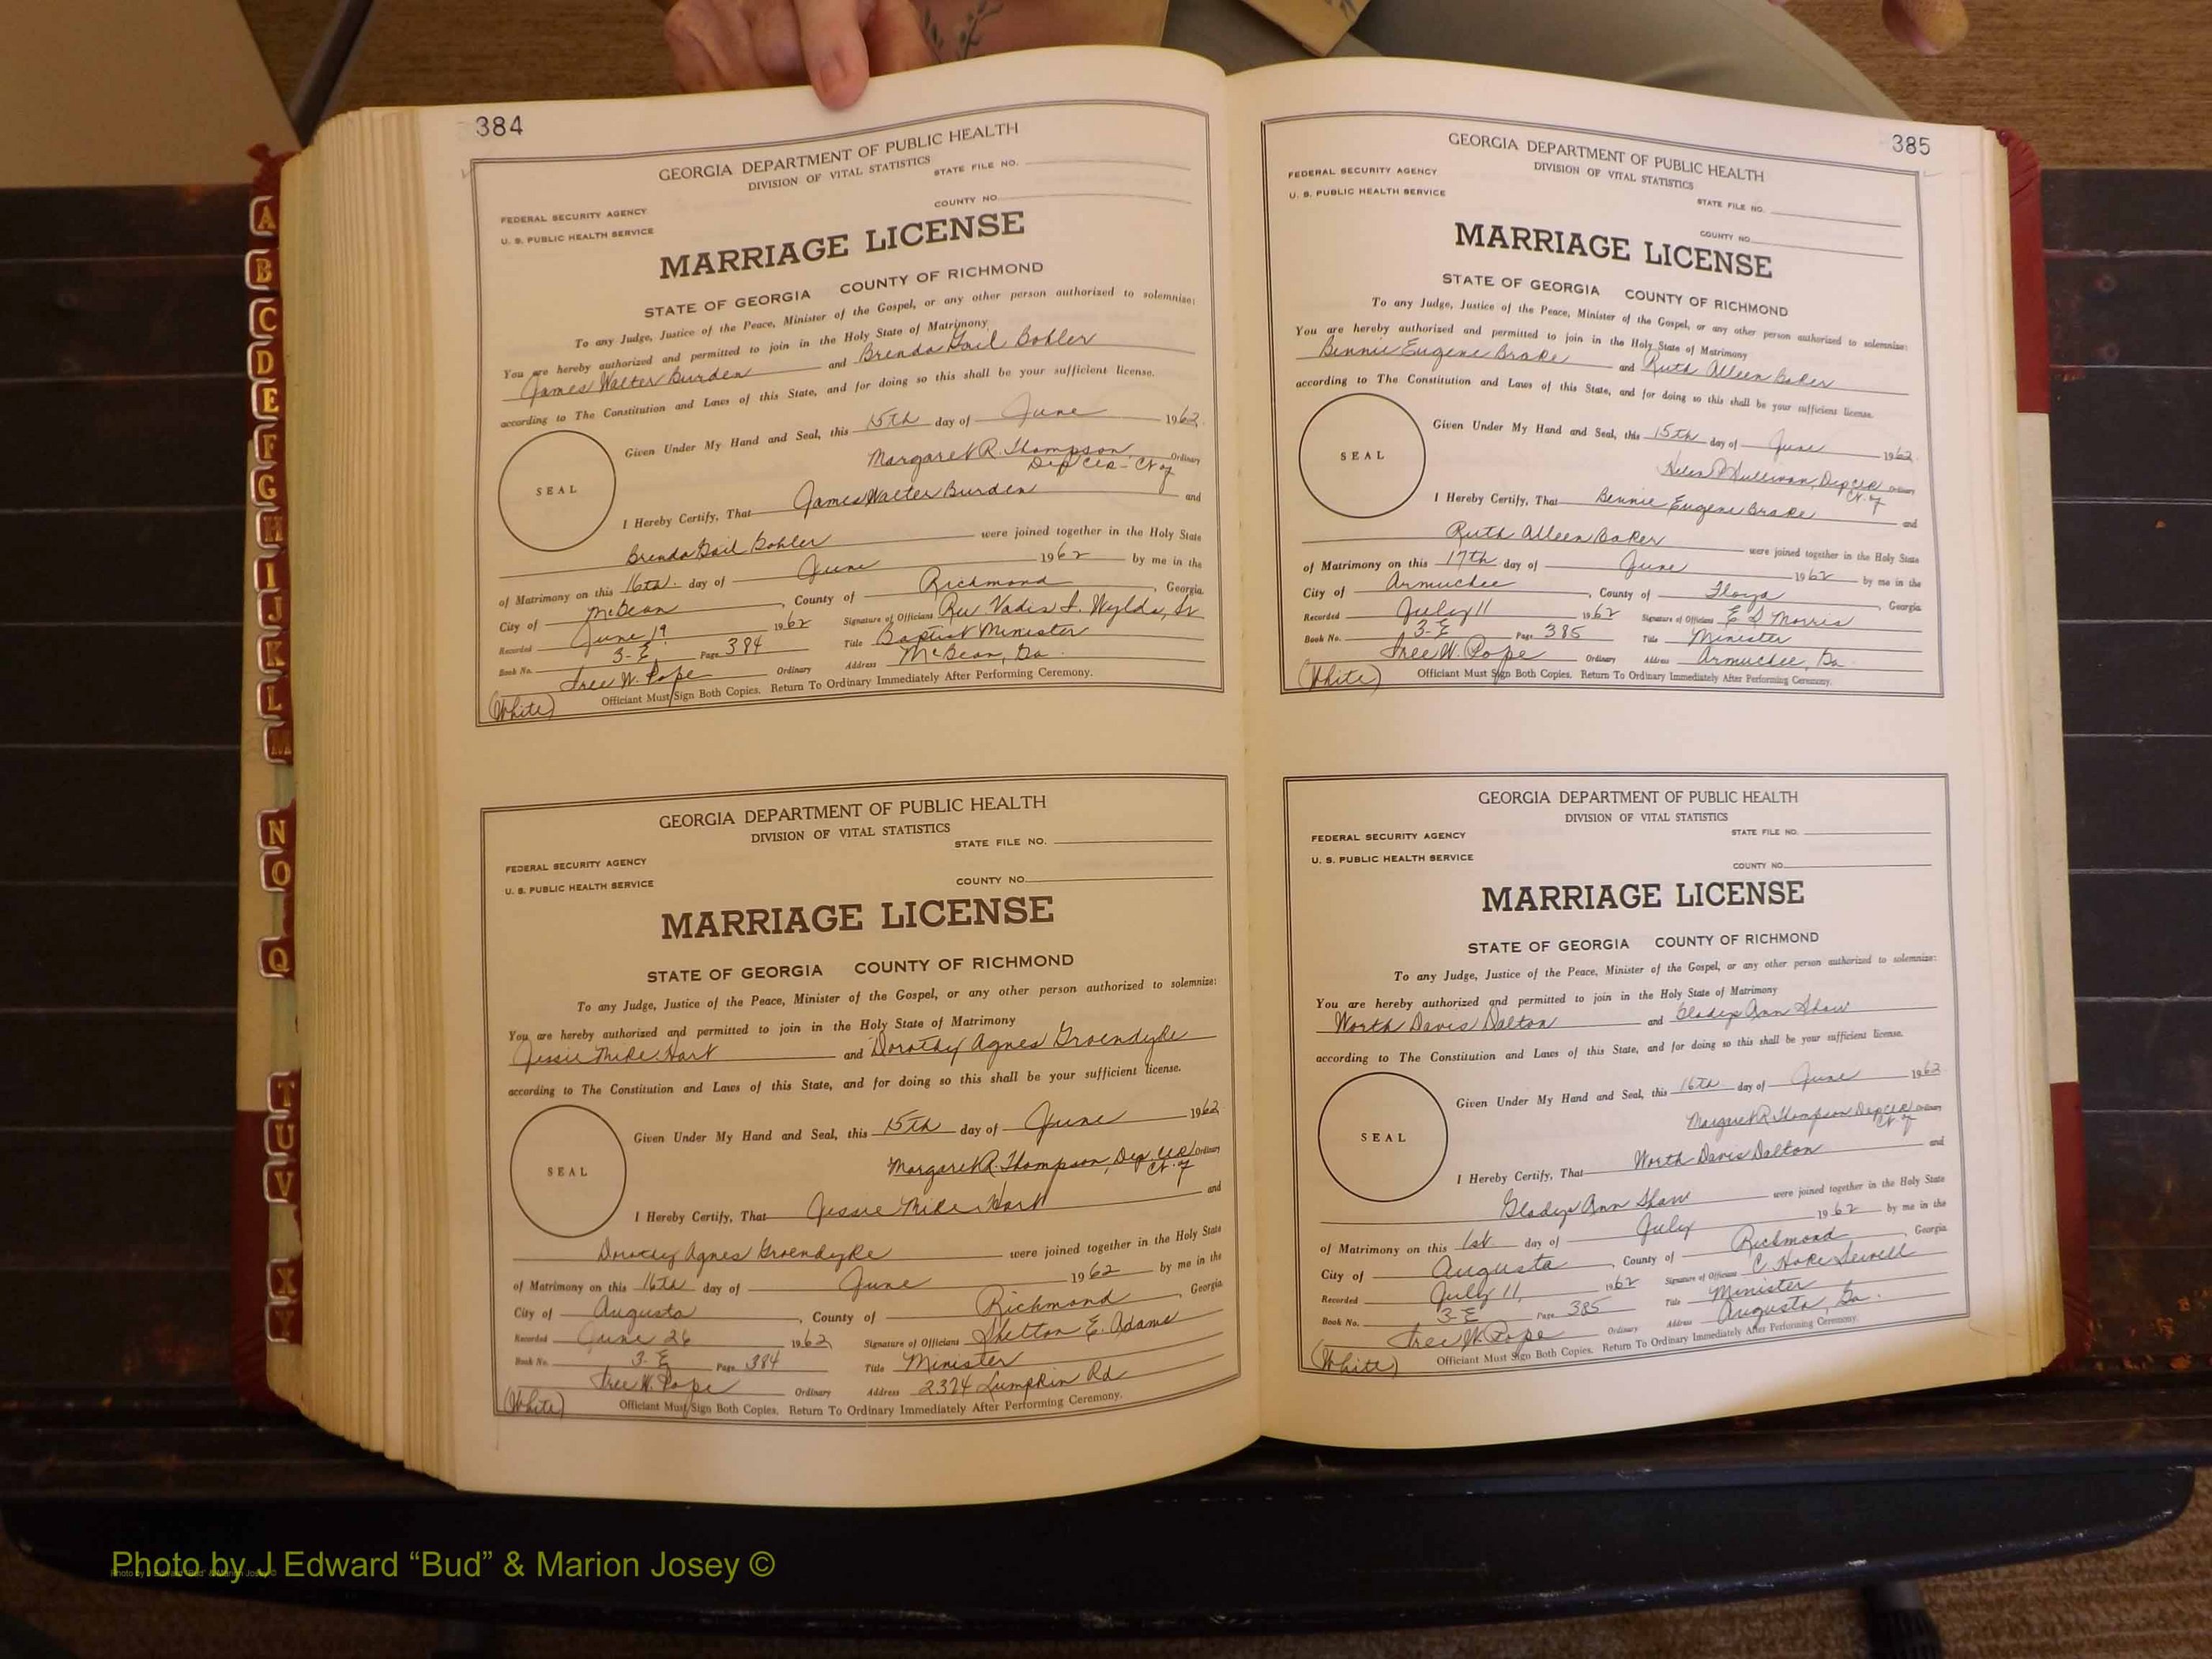 384
GEORGIA DEPARTMENT OF PUBLIC HEALTH
DIVISION OF VITAL STATISTICS
STATE FILE NO.
FEDERAL SECURITY AGENCY
COUNTY NO.
U. S. PUBLIC HEALTH SERVICE
MARRIAGE LICENSE
STATE OF GEORGIA COUNTY OF RICHMOND
To any Judge, Justice of the Peace, Minister of the Gospel, or any other person authorized to solemnize:
You are hereby authorized and permitted to join in the Holy State of Matrimony
James Walter Burden and Brenda Gail Bohler
according to The Constitution and Laws of this State, and for doing so this shall be your sufficient license.
Given Under My Hand and Seal, this 15th day of June 1962
SEAL
Margaret R. Thompson Ordinary
Dep Clk - Ct of
I Hereby Certify, That James Walter Burden and
Brenda Gail Bohler were joined together in the Holy State
of Matrimony on this 16th day of June 1962 by me in the
City of McBean, County of Richmond, Georgia.
Recorded June 19 1962 Signature of Officiant Rev. Vadis I. Wylds, Sr
Book No. 3-E Page 384 Title Baptist Minister
Tree W. Pope Ordinary Address McBean, Ga.
(White) Officiant Must Sign Both Copies. Return To Ordinary Immediately After Performing Ceremony.
GEORGIA DEPARTMENT OF PUBLIC HEALTH
DIVISION OF VITAL STATISTICS
STATE FILE NO.
FEDERAL SECURITY AGENCY
COUNTY NO.
U. S. PUBLIC HEALTH SERVICE
MARRIAGE LICENSE
STATE OF GEORGIA COUNTY OF RICHMOND
To any Judge, Justice of the Peace, Minister of the Gospel, or any other person authorized to solemnize:
You are hereby authorized and permitted to join in the Holy State of Matrimony
Jessie Mike Hart and Dorothy Agnes Groendyke
according to The Constitution and Laws of this State, and for doing so this shall be your sufficient license.
Given Under My Hand and Seal, this 15th day of June 1962
SEAL
Margaret R. Thompson, Dep Clk Ordinary
Ct. of
I Hereby Certify, That Jessie Mike Hart and
Dorothy Agnes Groendyke were joined together in the Holy State
of Matrimony on this 16th day of June 1962 by me in the
City of Augusta, County of Richmond, Georgia.
Recorded June 26 1962 Signature of Officiant Shelton E. Adams
Book No. 3-E Page 384 Title Minister
Tree W. Pope Ordinary Address 2374 Lumpkin Rd
(White) Officiant Must Sign Both Copies. Return To Ordinary Immediately After Performing Ceremony.
385
GEORGIA DEPARTMENT OF PUBLIC HEALTH
DIVISION OF VITAL STATISTICS
FEDERAL SECURITY AGENCY
STATE FILE NO.
U. S. PUBLIC HEALTH SERVICE
COUNTY NO.
MARRIAGE LICENSE
STATE OF GEORGIA COUNTY OF RICHMOND
To any Judge, Justice of the Peace, Minister of the Gospel, or any other person authorized to solemnize:
You are hereby authorized and permitted to join in the Holy State of Matrimony
Bennie Eugene Brake and Ruth Alleen Baker
according to The Constitution and Laws of this State, and for doing so this shall be your sufficient license.
Given Under My Hand and Seal, this 15th day of June 1962
SEAL
Sullivan, Dep Clk Ordinary
Ct. of
I Hereby Certify, That Bennie Eugene Brake and
Ruth Alleen Baker were joined together in the Holy State
of Matrimony on this 17th day of June 1962 by me in the
City of Armuchee, County of Floyd, Georgia
Recorded July 11 1962 Signature of Officiant E S Morris
Book No. 3-E Page 385 Title Minister
Tree W. Pope Ordinary Address Armuchee, Ga.
(White) Officiant Must Sign Both Copies. Return To Ordinary Immediately After Performing Ceremony.
GEORGIA DEPARTMENT OF PUBLIC HEALTH
DIVISION OF VITAL STATISTICS
STATE FILE NO.
FEDERAL SECURITY AGENCY
U. S. PUBLIC HEALTH SERVICE
COUNTY NO.
MARRIAGE LICENSE
STATE OF GEORGIA COUNTY OF RICHMOND
To any Judge, Justice of the Peace, Minister of the Gospel, or any other person authorized to solemnize:
You are hereby authorized and permitted to join in the Holy State of Matrimony
Worth Davis Dalton and Gladys Ann Shaw
according to The Constitution and Laws of this State, and for doing so this shall be your sufficient license.
Given Under My Hand and Seal, this 16th day of June 1962
SEAL
Margaret R. Thompson Dep Clk Ordinary
Ct. of
I Hereby Certify, That Worth Davis Dalton and
Gladys Ann Shaw were joined together in the Holy State
of Matrimony on this 1st day of July 1962 by me in the
City of Augusta, County of Richmond, Georgia
Recorded July 11, 1962 Signature of Officiant C Hoke Sewell
Book No. 3-E Page 385 Title Minister
Tree W. Pope Ordinary Address Augusta, Ga.
(White) Officiant Must Sign Both Copies. Return To Ordinary Immediately After Performing Ceremony.
A
B
C
D
E
F
G
H
I
J
K
L
M
N
O
Q
T
U
V
X
Y
Photo by J Edward “Bud” & Marion Josey ©
Photo by J Edward “Bud” & Marion Josey ©